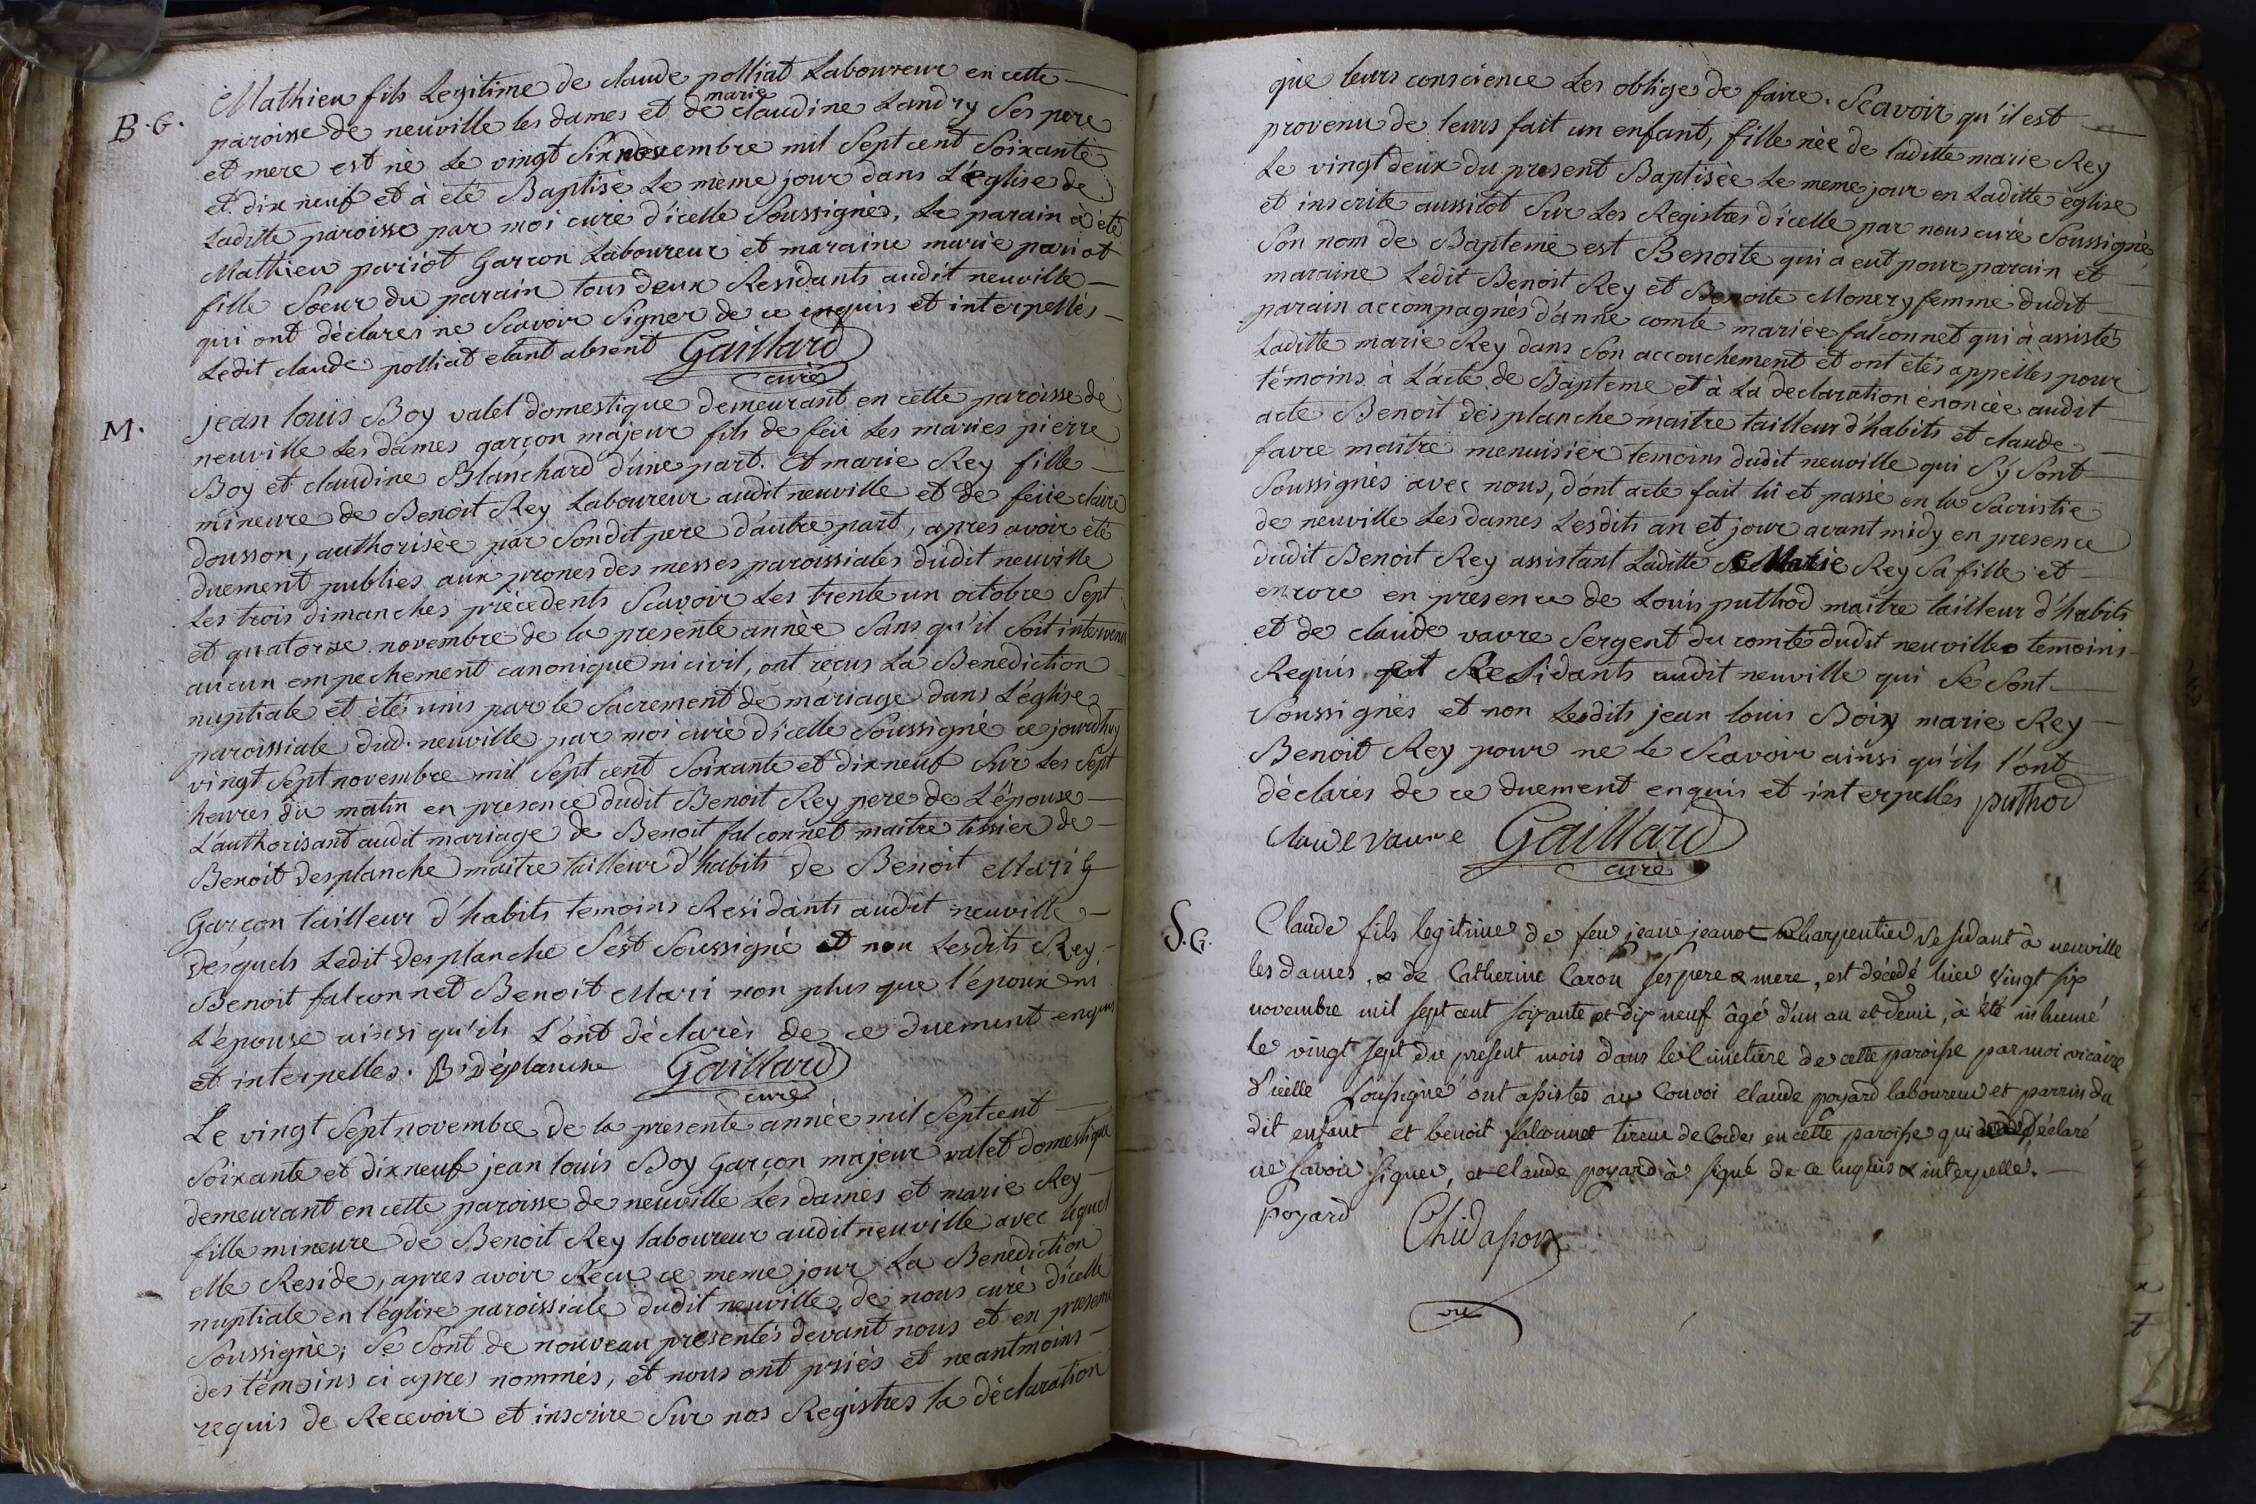 B. G.
Mathieu fils Legitime de claude polliat Laboureur en cette
paroisse de neuville les dames et de marie claudine Landry Ses pere
et mere est nè Le vingt Six novembre mil Sept cent Soixante
et dix neuf et à été Baptisè Le même jour dans L'église de
Laditte paroisse par moi curé d'icelle Soussignés, Le parain à été
Mathieu pariot Garcon Laboureur et maraine marie pariot
fille Sœur du parain tous deux Residants audit neuville
qui ont déclarés ne Scavoir Signer de ce enquis et interpellés
Ledit claude polliat etant absent Gaillard
curé
M.
jean louis Boy valet domestique demeurant en cette paroisse de
neuville Les dames garçon majeur fils de feu Les maries pierre
Boy et claudine Blanchard d'une part. Et marie Rey fille
mineure de Benoit Rey Laboureur audit neuville et de feüe claire
dousson, authorisèe par Sondit pere d'autre part, apres avoir été
duement publies aux prones des messes paroissiales dudit neuville
Les trois dimanches précèdents Scavoir Les trente un octobre Sept
et quatorze novembre de la presente annèe Sans qu'il Soit intervenu
aucun empechement canonique ni civil, ont reçus La Benediction
nuptiale et été unis par le Sacrement de mariage dans L'église
paroissiale dud. neuville par moi curé dicelle Soussigné ce jourdhuy
vingt Sept novembre mil Sept cent Soixante et dixneuf Sur Les Sept
heures du matin en presence dudit Benoit Rey pere de L'épouse
L'authorisant audit mariage de Benoit falconnet maitre tissier de
Benoit desplanche maitre tailleur d'habits de Benoit Mari G
Garçon tailleur d'habits temoins Residants audit neuville
desquels Ledit desplanche S'est Soussigné et non Lesdits Rey
Benoit falconnet Benoit Mari non plus que l'époux ni
L'épouse ainsi qu'ils L'ont déclarés de ce duement enquis
et interpelles. B. Déplanche Gaillard
curé
Le vingt Sept novembre de la presente année mil Sept cent
Soixante et dixneuf jean louis Boy Garçon majeur valet domestique
demeurant en cette paroisse de neuville Les dames et marie Rey
fille mineure de Benoit Rey laboureur audit neuville avec lequel
elle Reside, apres avoir Recu ce meme jour La Benediction
nuptiale en l'église paroissiale dudit neuville, de nous curé dicelle
Soussigné; Se Sont de nouveau presentés devant nous et en presence
des témoins ci apres nommés, et nous ont priés et neantmoins
requis de Recevoir et inscrire Sur nos Registres la déclaration
que leurs conscience Les oblige de faire. Scavoir qu'il est
provenu de leurs fait un enfant, fille née de laditte marie Rey
Le vingt deux du present Baptisèe Le meme jour en Laditte église
et inscrite aussitot Sur Les Registres d'icelle par nous curé Soussigné
Son nom de Bapteme est Benoite qui a eut pour parain et
maraine Ledit Benoit Rey et Benoite Monery femme dudit
parain accompagnés d'anne comte mariée falconnet qui à assistés
Laditte marie Rey dans Son accouchement et ont étés appellés pour
témoins à L'acte de Bapteme et à La declaration énoncée audit
acte Benoit desplanche maitre tailleur d'habits et claude
favre maitre menuisier temoins dudit neuville qui S'y Sont
Soussignés avec nous, d'ont acte fait lû et passé en la Sacristie
de neuville Les dames Lesdits an et jour avant midy en presence
dudit Benoit Rey assistant Laditte Marie Rey Sa fille et
encore en presence de Louis puthod maitre tailleur d'habits
et de claude vavre Sergent du comté dudit neuville temoins
Requis et Residants audit neuville qui Se Sont
Soussignés et non Lesdits jean louis Boiy marie Rey
Benoit Rey pour ne le Scavoir ainsi qu'ils l'ont
déclarés de ce duement enquis et interpelles puthod
Claude vavre Gaillard
curé
S. G.
Claude fils legitime de feu jean jeanot Charpentier residant à neuville
les dames, & de Catherine Caron ses pere & mere, est décédé hier vingt six
novembre mil sept cent soixante et dix neuf âgé d'un an et demi, à été inhumé
le vingt sept du present mois dans le Cimetière de cette paroisse par moi vicaire
d'icelle soussigné ont assistes au Convoi claude poyard laboureur et parrin du
dit enfant et benoit falconnet tireur de Cordes en cette paroisse qui déclaré
ne savoir signer, et claude poyard à signé de ce enquis & interpelles.
poyard Chidapoux
vic